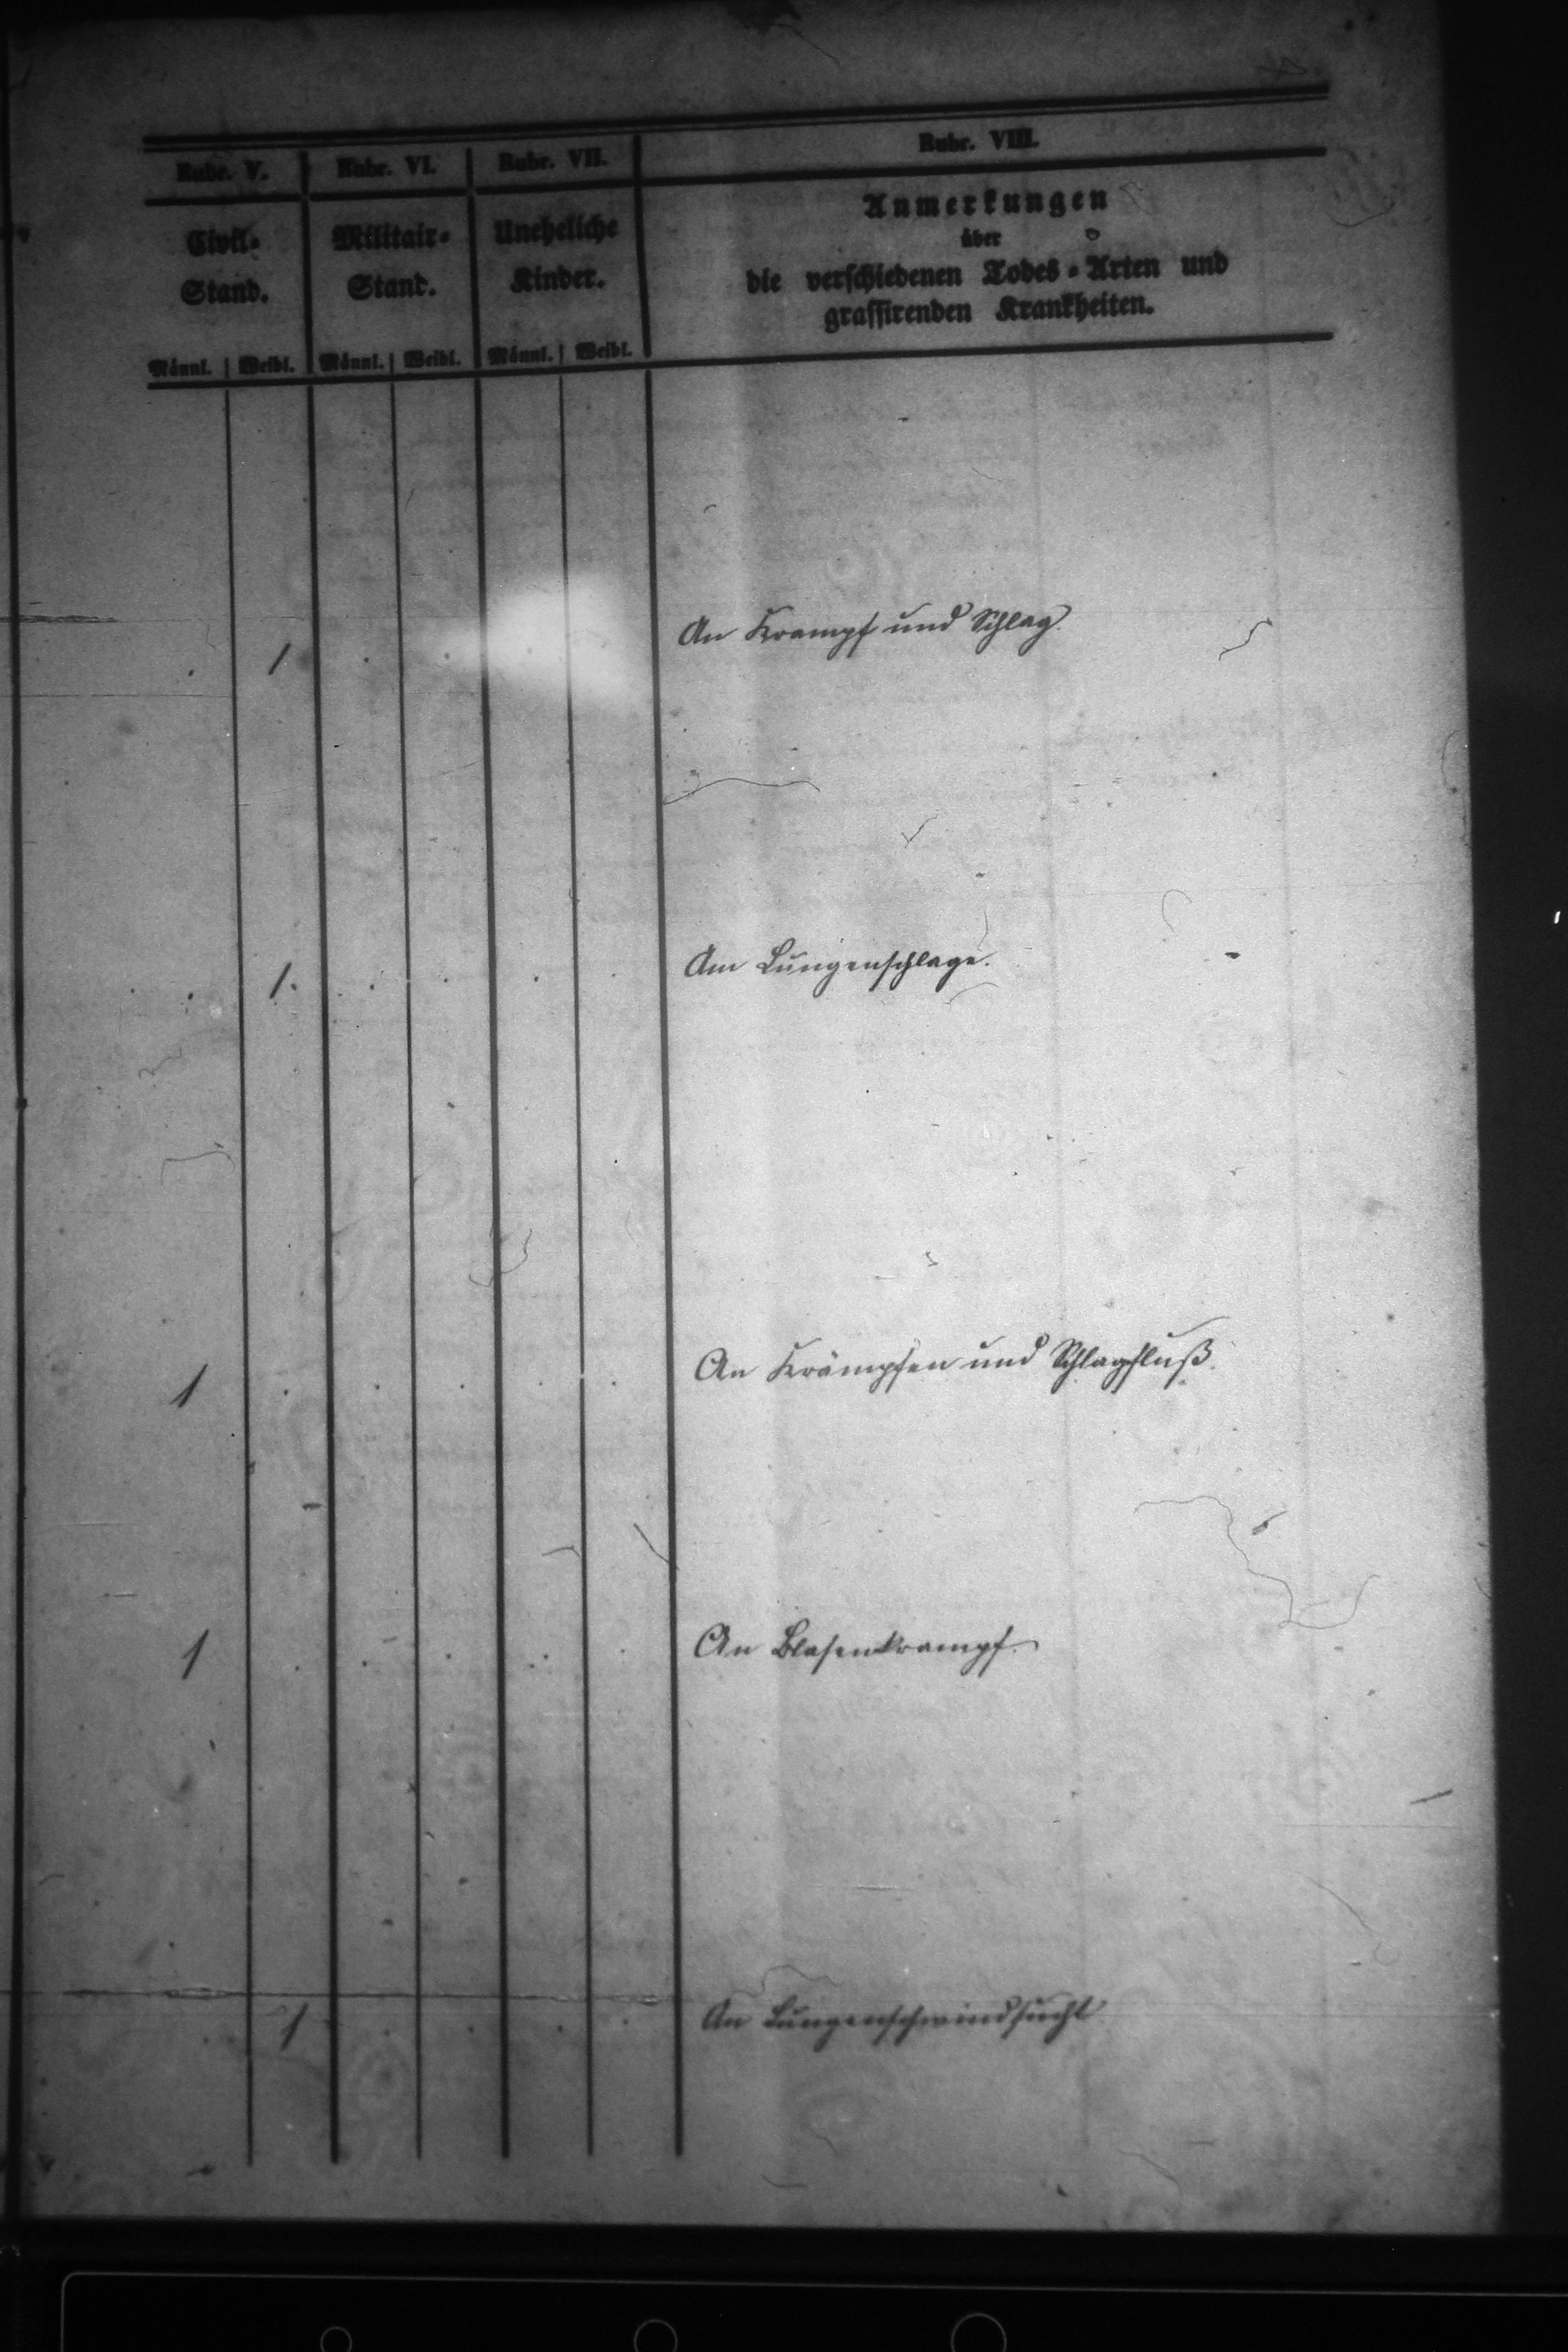 Rubr. V. Rubr. VI. Rubr. VII. Rubr. VIII.
Civil-
Stand.
Militair-
Stand.
Uneheliche
Kinder.
Anmerkungen
über
die verschiedenen Todes-Arten und
grassirenden Krankheiten.
Männl. Weibl. Männl. Weibl. Männl. Weibl.
1 An Krampf und Schlag.
1. Am Lungenschlage.
1 An Krämpfen und Schlagfluß.
1 An Blasenkrampf.
1 An Lungenschwindsucht